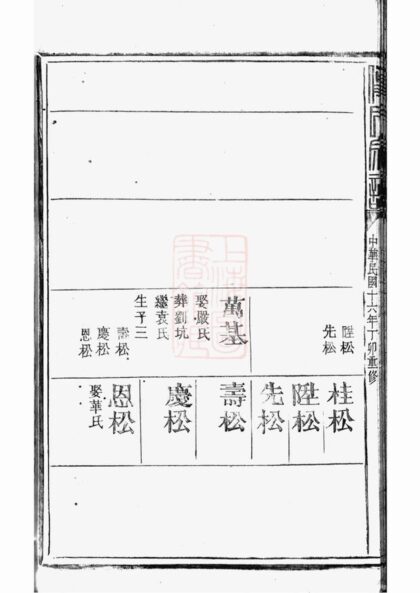 中華民國十六年丁卯重修
陞松
先松
萬基
娶嚴氏
葬劉坑
繼袁氏
生子三
壽松
慶松
恩松
桂松
陞松
先松
壽松
慶松
恩松
娶華氏